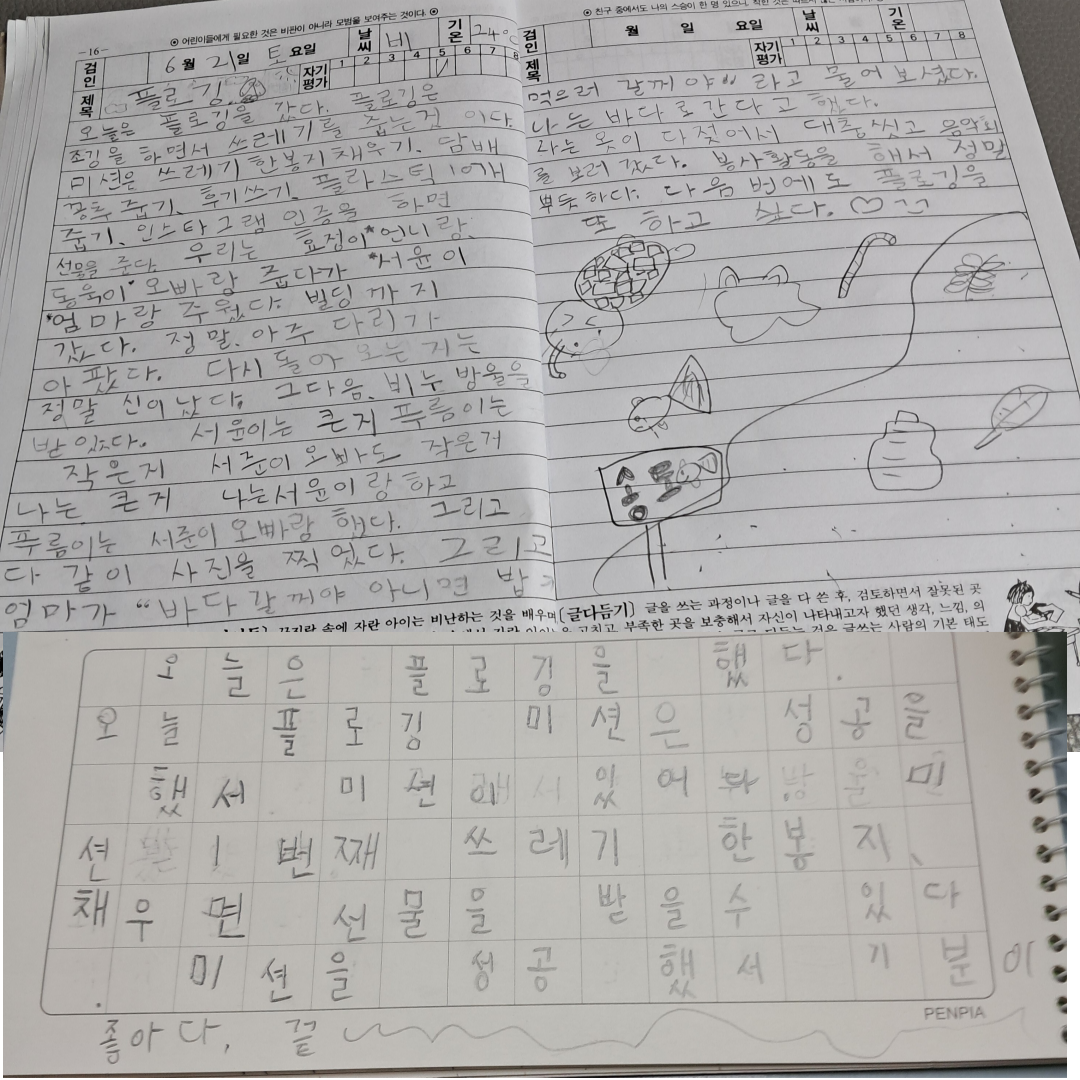 -16-
⊙ 어린이들에게 필요한 것은 비판이 아니라 모범을 보여주는 것이다. ⊙
검인 6월 21일 토요일 날씨 비 기온 24
제목 플로깅 자기평가 1 2 3 4 5 6 7 8
오늘은 플로깅을 갔다. 플로깅은
조깅을 하면서 쓰레기를 줍는것 이다
미션은 쓰레기 한봉지채우기. 담배
꽁추 줍기, 후기쓰기, 플라스틱 1개
줍기, 인스타그램 인증을 하면
선물을 준다 우리는 효정이*언니랑
동욱이*오빠랑 줍다가 *서윤이
*엄마랑 주웠다. 빌딩 까지
갔다. 정말.아주 다리가
아팠다. 다시 돌아 오는 지는
정말 신이났다 그다음, 비누 방울을
받았다. 서윤이는 큰거 푸름이는
작은거 서준이 오빠도 작은거
나는 큰거 나는서윤이랑 하고
푸름이는 서준이 오빠랑 했다. 그리고
다 같이 사진을 찍었다. 그리고
엄마가 "바다 갈꺼야 아니면 밥
⊙ 친구 중에서도 나의 스승이 한 명 있으니,
검인 월 일 요일 날씨 기온
제목 자기평가 1 2 3 4 5 6 7 8
먹으러 갈꺼야" 라고 물어 보셨다.
나는 바다로간다고 했다.
라는 옷이 다젖어서 대충씻고 음악회
를 보러 갔다. 봉사활동을 해서 정말
뿌듯 하다. 다음 번에도 플로깅을
또 하고 싶다.
송돌
속에 자란 아이는 비난하는 것을 배우며
[글다듬기] 글을 쓰는 과정이나 글을 다 쓴 후, 검토하면서 잘못된 곳
을 고치고, 부족한 곳을 보충해서 자신이 나타내고자 했던 생각, 느낌, 의
글쓰는 사람의 기본 태도
오늘은 플로깅을 했다.
오늘 플로깅 미션은 성공을
했서 미션애서 있어다 방울 미
션 1번째 쓰레기 한봉지、
채우면 선물을 받을수 있다
. 미션을 성공 했서 기분이
좋아다, 끝
PENPIA